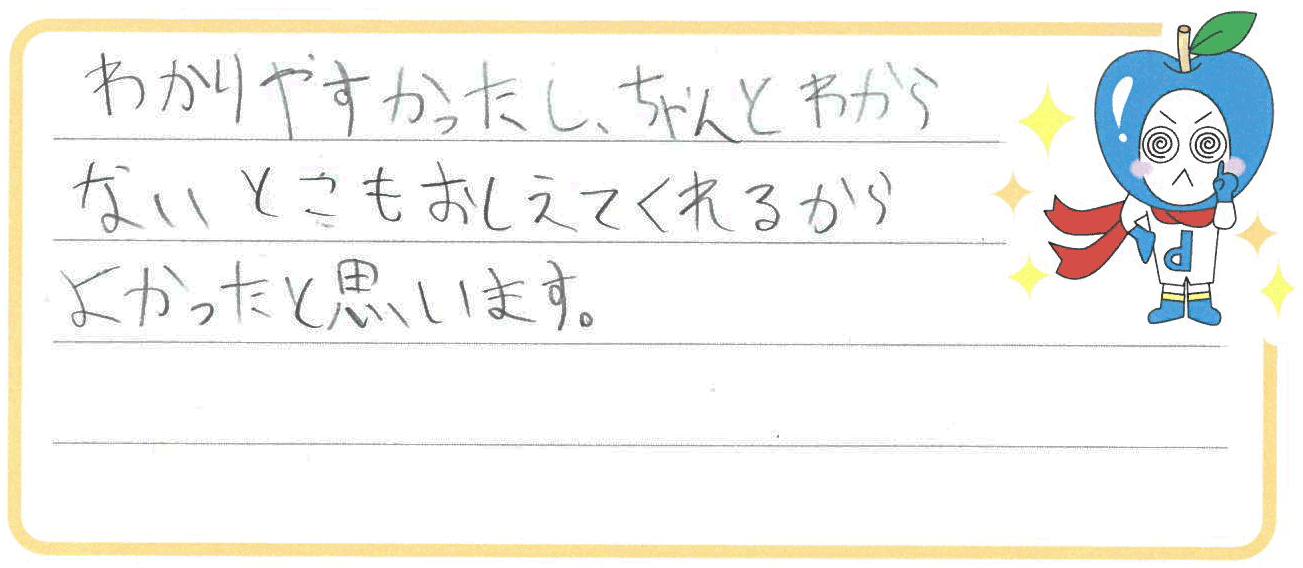 わかりやすかったし、ちゃんとわから
ないとこもおしえてくれるから
よかったと思います。